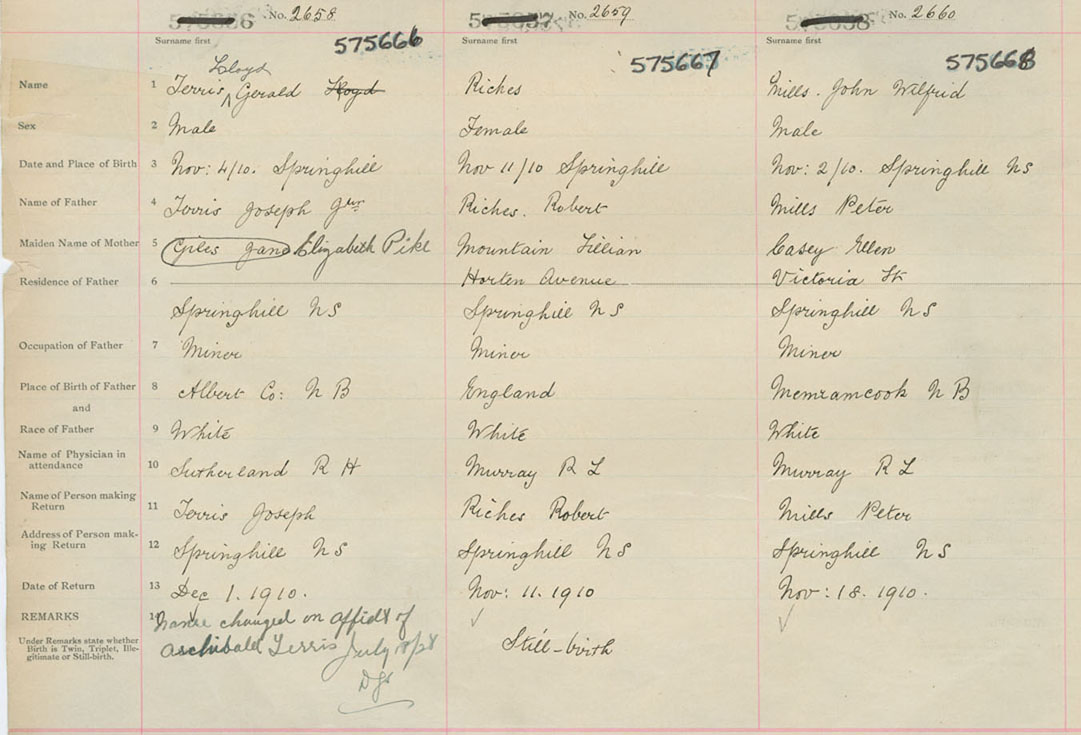 No. 2658 No. 2659 No. 2660
Surname first Surname first Surname first
575666 575667 575668
Lloyd
Name 1 Terris, Gerald Lloyd Riches Mills. John Wilfrid
Sex 2 Male Female Male
Date and Place of Birth 3 Nov: 4/10. Springhill Nov 11/10 Springhill Nov: 2/10. Springhill NS
Name of Father 4 Terris Joseph Riches. Robert Mills Peter
Maiden Name of Mother 5 Giles Jane Elizabeth Pike Mountain Lillian Casey Ellen
Residence of Father 6 Horten Avenue Victoria St
Springhill NS Springhill NS Springhill NS
Occupation of Father 7 Miner Miner Miner
Place of Birth of Father 8 Albert Co: NB England Memramcook NB
and
Race of Father 9 White White White
Name of Physician in
attendance 10 Sutherland R H Murray R L Murray R L
Name of Person making
Return 11 Terris Joseph Riches Robert Mills Peter
Address of Person mak-
ing Return 12 Springhill NS Springhill NS Springhill NS
Date of Return 13 Dec 1. 1910. Nov: 11. 1910 Nov: 18. 1910.
REMARKS 14 Name changed on Affidt of
Under Remarks state whether
Birth is Twin, Triplet, Ille-
gitimate or Still-birth.
Archibald Terris July Still-birth